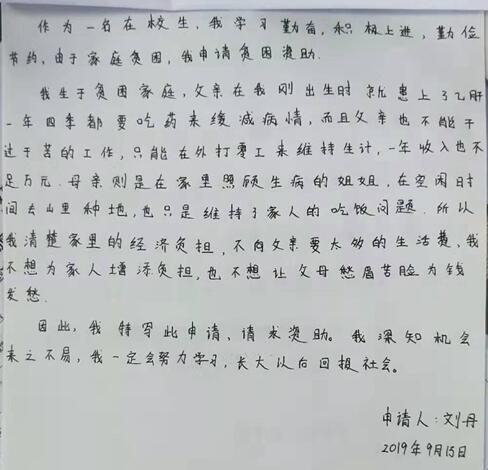 作为一名在校生，我学习勤奋，积极上进，勤俭
节约，由于家庭贫困，我申请贫困资助．
我生于贫困家庭，父亲在我刚出生时就患上了乙肝
一年四季都要吃药来缓减病情，而且父亲也不能干
过于苦的工作，只能在外打零工来维持生计，一年收入也不
足万元．母亲则是在家里照顾生病的姐姐，在空闲时
间去山里种地，也只是维持了家人的吃饭问题．所以
我清楚家里的经济负担，不向父亲要太多的生活费、我
不想为家人增添负担，也不想让父母愁眉苦脸为钱
发愁．
因此，我特写此申请、请求资助。我深知机会
来之不易，我一定会努力学习，长大以后回报社会。
申请人：刘丹
2019年9月15日